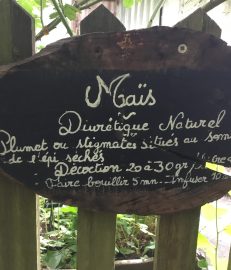 Maïs
Diurétique Naturel
Plumet ou stigmates situés au som
de l'épi séchés
Décoction 20 à 30 gr /
Faire bouillir 5 mn... Infuser 10